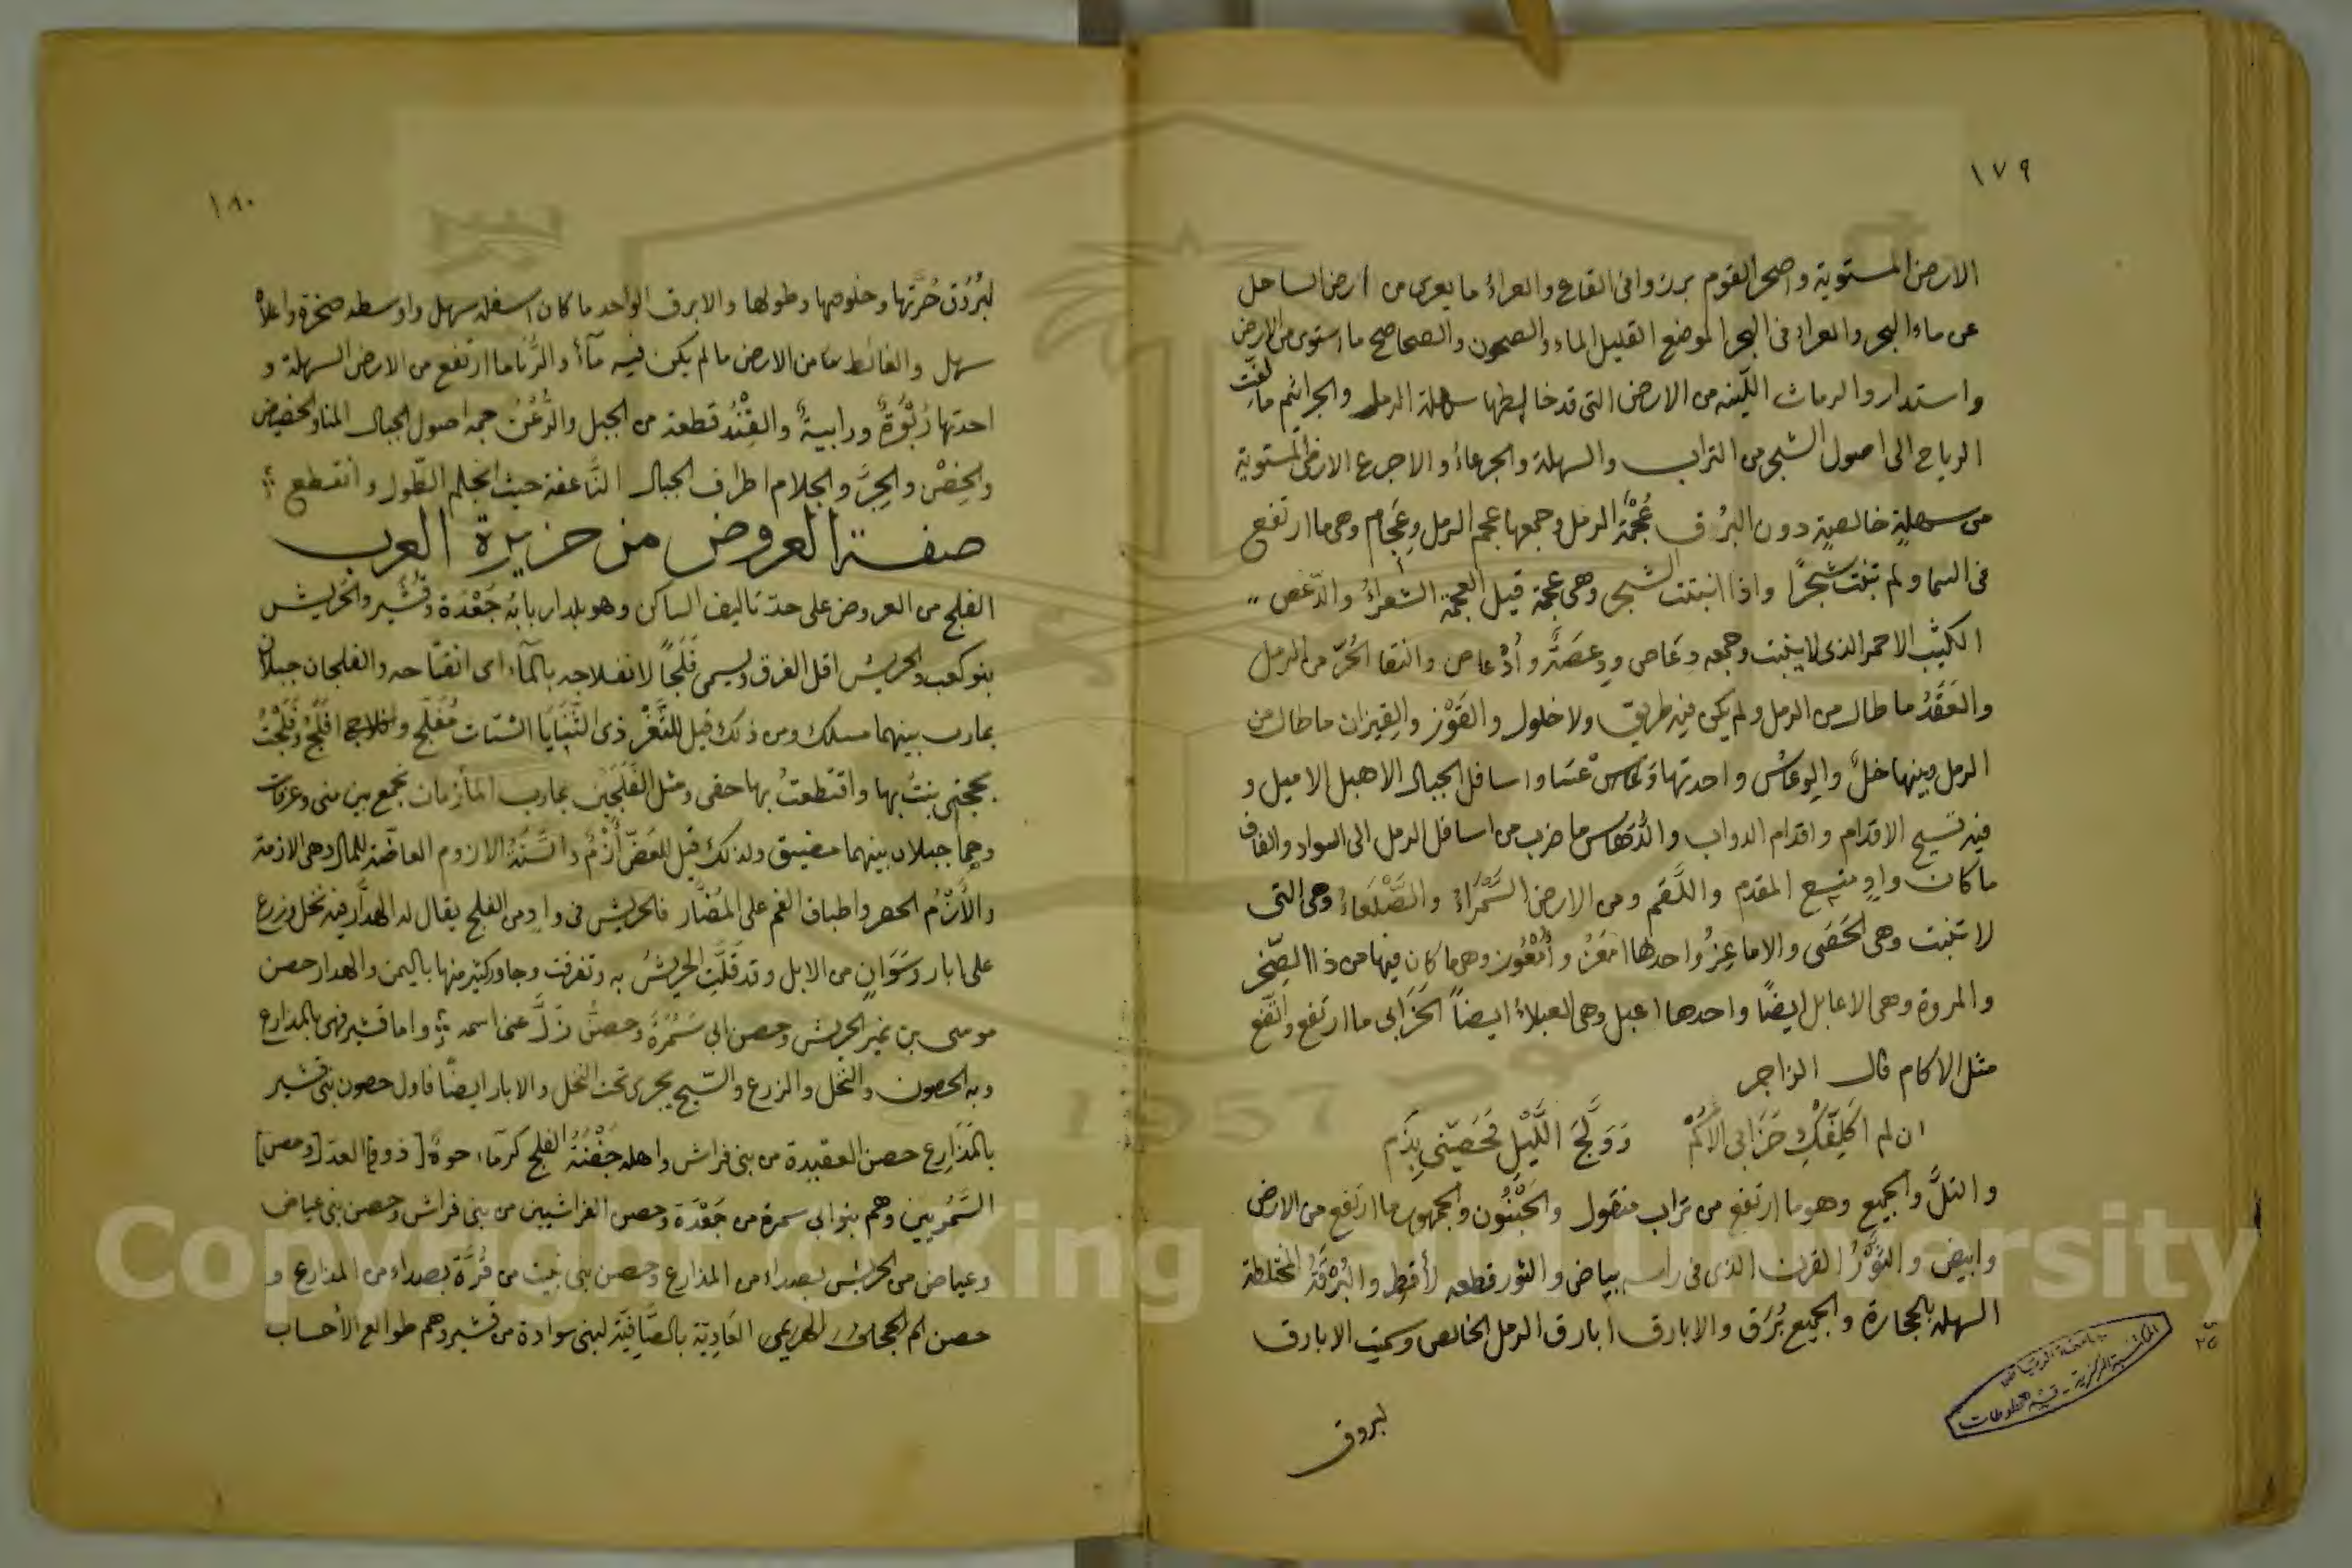 ١٧٩
الارض المستوية واصحر القوم برزوا فى القاع والعراء ما يعرى من ارض الساحل
عن ماء البحر والعراء فى البحر الموضع القليل الماء والصحون والصحاصح ما استوى من الارض
واستدار والرماث اللّينة من الارض التى قد خالطها سهلة الرمل والجراثيم ما لفّت
الرياح الى اصول الشجر من التراب والسهلة والجرعاء والاجرع الارض المستوية
من سهلةٍ خالصةٍ دون البُرق عُجْمَة الرمل وجمعها عجم الرمل وعِجَام وهى ما ارتفع
فى السما ولم تنبت شجرًا واذا انبتت الشجر وهى عجمة قيل العجمة الشعراءُ والدّعص
الكثيب الاحمر الذى لا ينبت وجمعه دِعَاص ودِعَصَةٌ وأدْعاص والنقا الحُرّ من الرمل
والعَقَدُ ما طال من الرمل ولم يكن فيه طريق ولا خلول والقَوْز والقِيزان ما طال من
الرمل وبينها خلٌ والوعاس واحدتها وَعْس واسافل الجبال الاهبل الاميل و
فيه تسيح الاقدام واقدام الدواب والدَّهاس ما ضرب من اسافل الرمل الى السواد والفاف
ما كان وادٍ متسع المقدم واللَّقَم ومن الارض السَّمْرَاءُ والصَّلْعَاءُ وهى التى
لا تنبت وهى الحَصَى والاماعِزُ واحدها امْعَزُ وأمْعُوز وهى ما كان فيها من ذا الصّخر
والمروة وهى الاعابل ايضًا واحدها اعبل وهى العبلاءُ ايضاً الحَزَابى ما ارتفع واتّقع
مثل الاكام قال الراجز
ان لم اكَلِّفْكِ حَزَابى الأكُمْ وَوَلَجَ اللَّيْلِ فَحَصِّنى بِذَم
والتلّ والجميع وهو ما ارتفع من تراب منقول والجُبْنُون والجمهور ما ارتفع من الارض
وابيض والثَّوْرُ القرن الذى فى راسه بياض والثور قطعه لأقط والبُرْقَةُ المختلطة
السهله بالحجارة والجميع بُرَق والابارق ابارق الرمل الخالص وسميت الابارق
لبروق
١٨٠
لبُرُوْق حُرَّتِها وخلوصها وطولها والابرق الواحد ما كان اسفله سهل واوسطه صخرة واعلاهُ
سهل والغائط ما من الارض ما لم يكن فيه مآءٌ والرُّبَا ما ارتفع من الارض السهلة و
احدتها رُبْوَةٌ ورابيةٌ والفِنْدُ قطعة من الجبل والرُّعُنُ جمه اصول الجبال المنا والحضيض
والحِضْن والجِرُّ والجلام اطراف الجبال النَّاعفة حيث انجلم الطّول وانقطع
صفة العروض من جزيرة العرب
الفلج من العروض على حدّ تاليف الساكن وهو بلد اربابه جَعْدَة وقُشَير والحَرِيش
بنو كعب والحريش اقل الفرق ويسمى فَلَجاً لانفلاجه بالمآء اى انفتاحه والفلجان جبلان
بمارب بينهما مسلك ومن ذلك قيل للثَّغْر ذى الثَّنَايَا الشتات مُفَلَّج وافلاجه افْلَجُ وفَلَجْتُ
بحجتى بنتُ بها واقتطعتُ بها حقى ومثل الفَلَجَيْن بمارب المأزمان بجمع بين منى وعرفات
وهما جبلان بينهما مضيق ولذلك قيل للعَضّ أزْمٌ والسَّنَةُ الازوم العاضّة للمال وهى الازمة
والأزْمُ الحصر واطباق الفم على المُضَار فالحريش فى وادٍ من الفلج يقال له الهدَّار فيه نخل وزرع
على ابار وسَوَانٍ من الابل وقد قَلَّتِ الحريشُ به وتفرقت وجاور كثير منها باليمن والهدار حصن
موسى بن نمير الحريش وحصن ابى سَمُرَة وحصنٌ زَلَّ عنا اسمه واما قشير فهى بالمذارع
وبه الحصون والنخل والزرع والسّيح يجرى تحت النخل والابار ايضًا فاول حصون بنى قشير
بالمَذَارِع حصن العقيدة من بنى فراش واهله جَفْنَةُ الفلج كرمآء حوة [ذووا] العدّ [وحصن]
السَّمُريين وهم بنو ابى سمرة من جَعْدَة وحصن الفراشيين من بنى فراش وحصن بنى عياض
وعياض من الحريش بصداء من المذارع وحصن بنى نبت من قُرَّة بصداء من المذارع و
حصن ام الجحاف الهزيمى العَادِيّة بالصَّافِيَة لبنى سوادة من قشير وهم طوالع الأحساب
Copyright © King Saud University
1957
جامعة الرياض
المكتبة المركزية - قسم المخطوطات